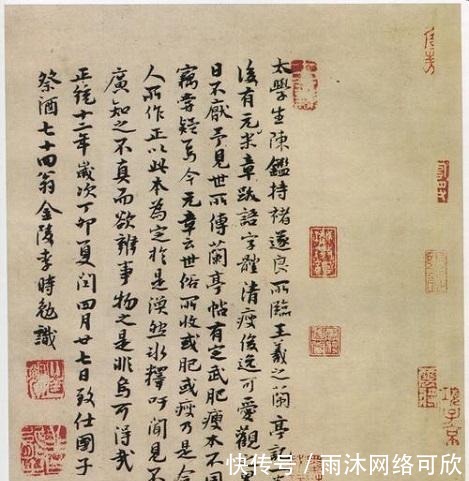 太學生陳鑑持褚遂良所臨王羲之蘭亭記
後有元米章跋語字體清瘦俊逸可愛觀
日不厭予見世所傳蘭亭帖有定武肥瘦本不同
竊嘗疑焉今元章云世俗所收或肥或瘦乃是今
人所作正以此本為定於是渙然冰釋吁聞見不
廣知之不真而欲辨事物之是非烏可得哉
正統十二年歲次丁卯夏閏四月廿七日致仕國子
祭酒七十四翁金陵李時勉識
項子京
快传号/雨沐网络可欣